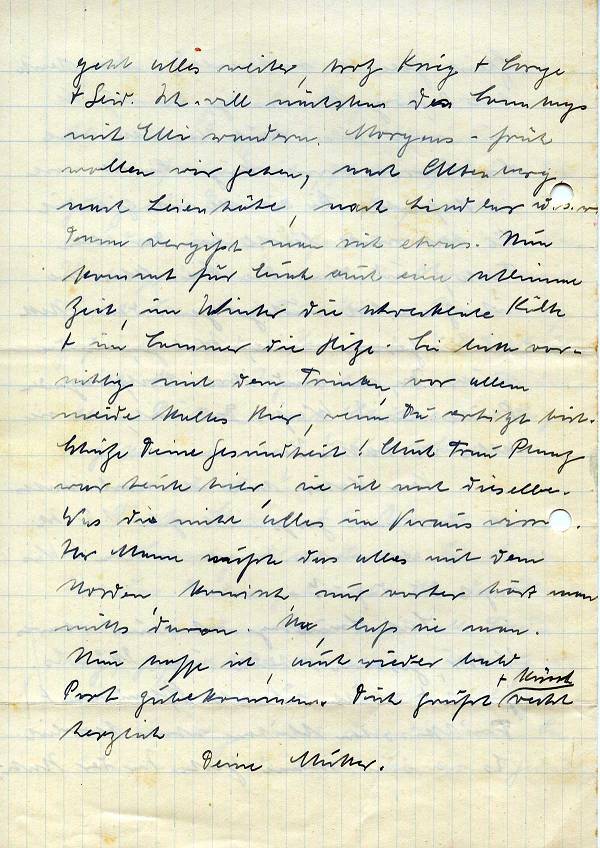 geht alles weiter, trotz Krieg + Sorge
+ Leid. Ich will nächstens des Sonntags
mit Elli wandern. Morgens-früh
wollen wir gehen, nach Altenberg,
nach Leienhöhe, nach Lindlar u.s.w
Dann vergißt man mit etwas. Nun
kommt für Euch auch eine schlimme
Zeit, im Winter die schreckliche Kälte
+ im Sommer die Hitze. Sei bitte vor-
sichtig mit dem Trinken, vor allem
meide kaltes Bier, wenn Du erhitzt bist.
Schütze Deine Gesundheit! Auch Frau
war heute hier, sie ist noch dieselbe.
Was die nicht alles im Voraus wissen.
Ihr Mann wußte das alles mit dem
Norden, komisch nur vorher hört man
nichts davon. Na, laß sie man.
Nun hoffe ich, auch wieder bald
Post zu bekommen. Dich grüßt + küsst recht
herzlich
Deine Mutter.